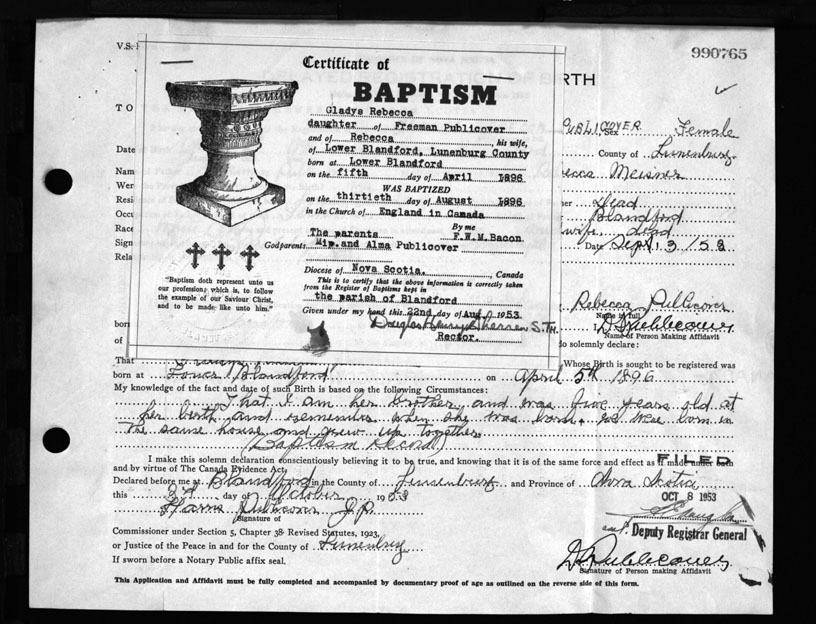 V.S.
990765
Certificate of
BAPTISM
Gladys Rebecca
daughter of Freeman Publicover
and of Rebecca, his wife,
of Lower Blandford, Lunenburg County
born at Lower Blandford
on the fifth day of April 1896
WAS BAPTIZED
on the thirtieth day of August 1896
in the Church of England in Canada
By me
The parents F.W.M.Bacon
Godparents Mip. and Alma Publicover
Diocese of Nova Scotia, Canada
This is to certify that the above information is correctly taken
from the Register of Baptisms kept in
the parish of Blandford
Given under my hand this 22nd day of Aug 1953
Douglas S. Th.
Rector.
"Baptism doth represent unto us
our profession; which is, to follow
the example of our Saviour Christ,
and to be made like unto him."
RTH
TO
Publicover Sex Female
Date County of Lunenburg
Name Rebecca Meisner
Wer Dead
Resi Blandford
Occu wife dead
Race Date Sept 3/53
Sign
Rela
Rebecca Publicover
Name in full
Name of Person Making Affidavit
born do solemnly declare:
of
That Whose Birth is sought to be registered was
born at Lower Blandford on April 5th 1896
My knowledge of the fact and date of such Birth is based on the following Circumstances:
That I am her brother, and was five years old at
her birth and remember when she was born. We were born in
the same house and grew up together.
(Baptism Record)
I make this solemn declaration conscientiously believing it to be true, and knowing that it is of the same force and effect as if made under oath
and by virtue of The Canada Evidence Act.
FILED
Declared before me at Blandford in the County of Lunenburg and Province of Nova Scotia
this 3rd day of October 1953
OCT 8 1953
Harris Publicover J.P.
Signature of
Deputy Registrar General
Commissioner under Section 5, Chapter 38 Revised Statutes, 1923,
or Justice of the Peace in and for the County of Lunenburg
If sworn before a Notary Public affix seal.
Signature of Person making Affidavit
This Application and Affidavit must be fully completed and accompanied by documentary proof of age as outlined on the reverse side of this form.